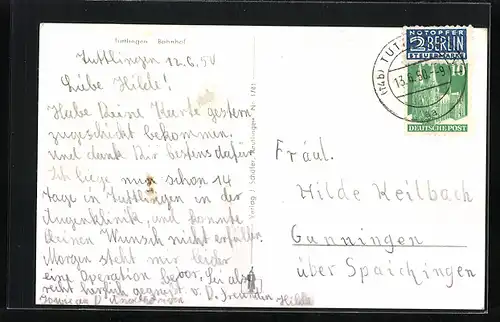 Tuttlingen Bahnhof
Tuttlingen 12.6.50
Liebe Hilde!
Habe Deine Karte gestern
zugeschickt bekommen,
und dank Dir bestens dafür
Ich liege nun schon 14
Tage in Tuttlingen in der
Augenklinik, und konnte
Deinen Wunsch nicht erfüllen.
Morgen steht mir leider
eine Operation bevor, Sei also
recht herzlich gegrüßt v. D. Freundin Hilde
Verlag J. Reutlingen
NOTOPFER
2 BERLIN
STEUERMARKE
(14b) TUT
13.6.50.-9
DEUTSCHE POST
Fräul.
Hilde Keilbach
Gunningen
über Spaichingen